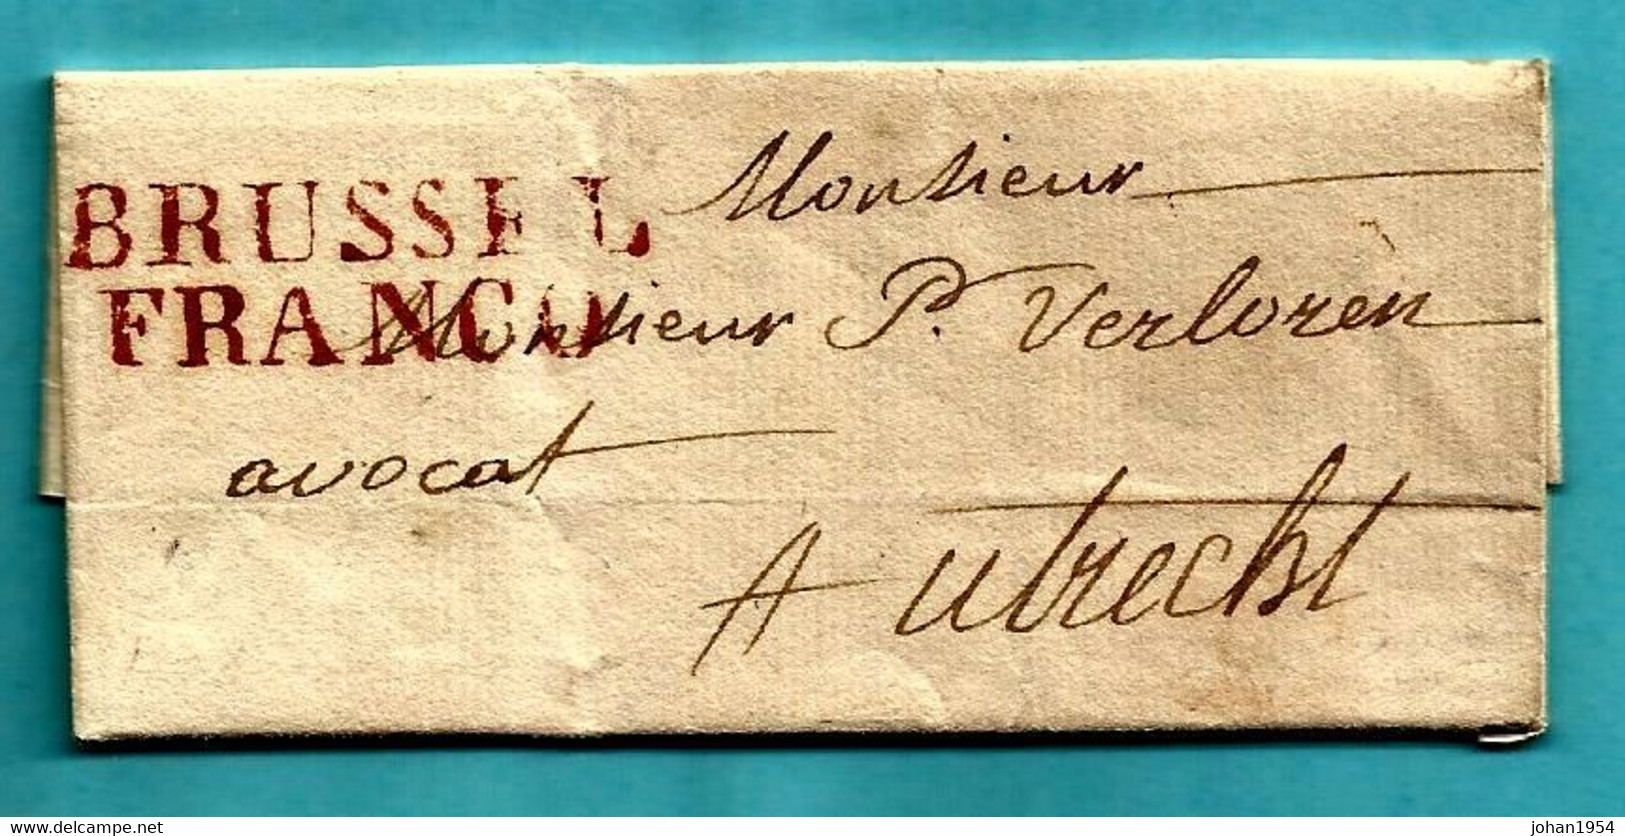 BRUSSEL
FRANCO
Monsieur
Monsieur P. Verloren
avocat
A utrecht
www.delcampe.net
johan1954